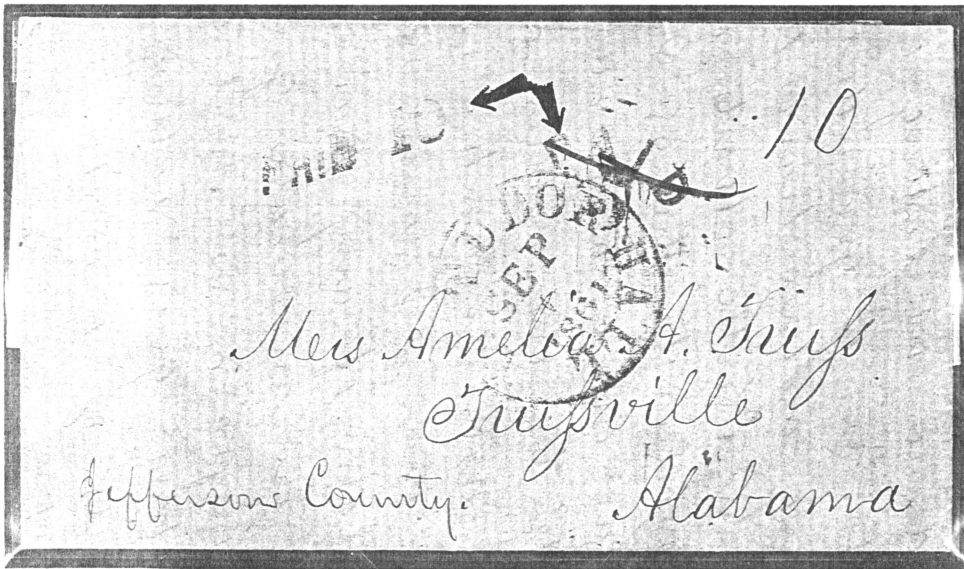 PAID 10
PAID
10
SEP
1861
Mrs Amelia A. Truss
Trussville
Jefferson County.
Alabama